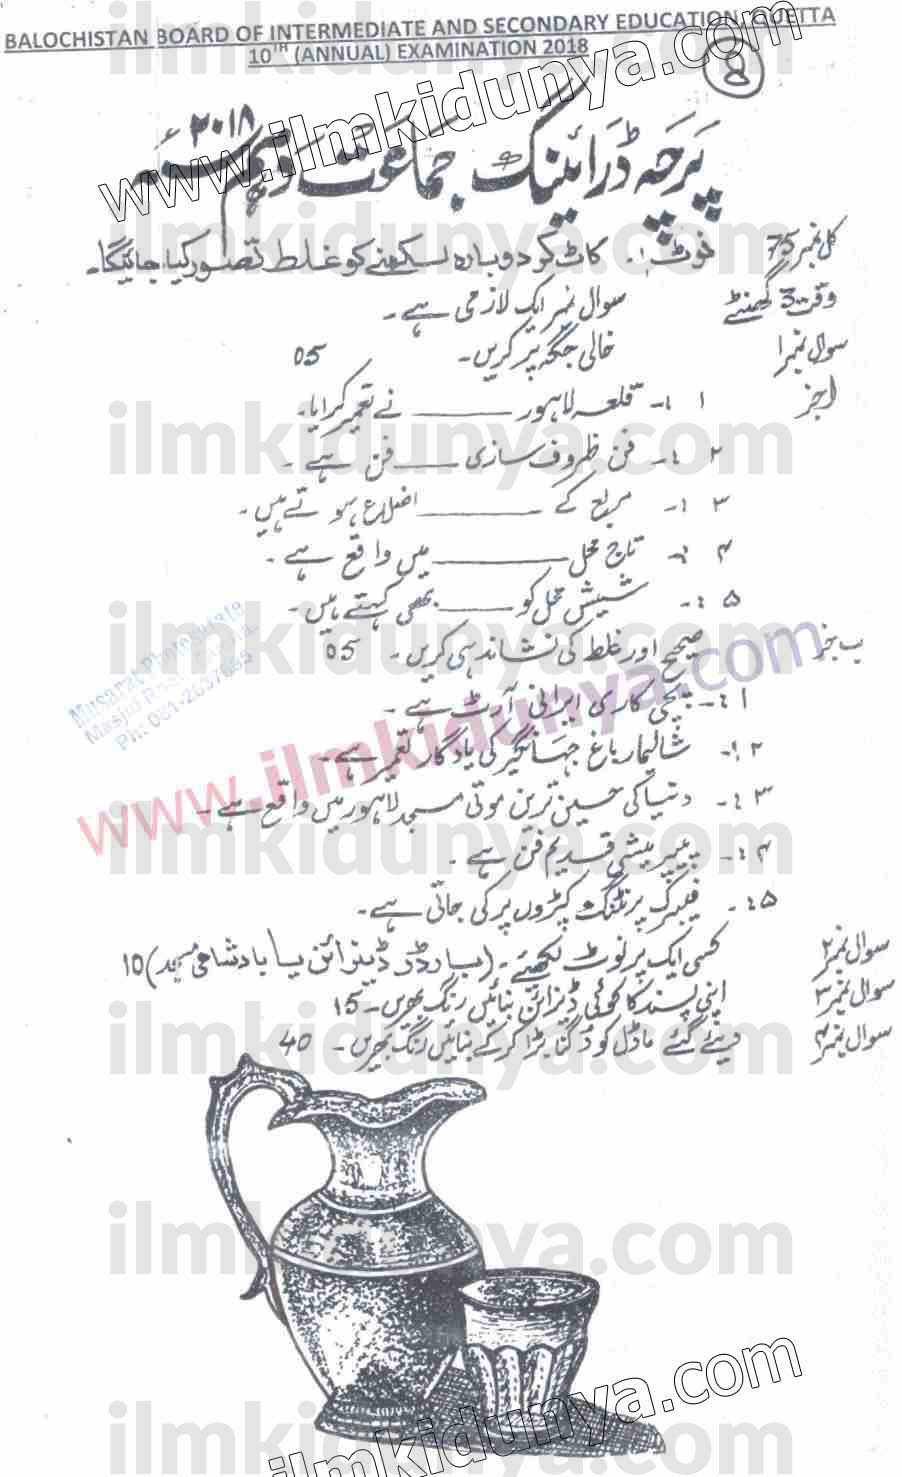 BALOCHISTAN BOARD OF INTERMEDIATE AND SECONDARY EDUCATION, QUETTA
10TH (ANNUAL) EXAMINATION 2018
پرچہ ڈرائینگ جماعت دہم ۲۰۱۸ء
کل نمبر 75 نوٹ :۔ کاٹ کر دوبارہ لکھنے کو غلط تصور کیا جائیگا۔
وقت 3 گھنٹے سوال نمبر ایک لازمی ہے۔
سوال نمبر ۱ خالی جگہ پر کریں۔ 05
ا جز ۱ :۔ قلعہ لاہور ______ نے تعمیر کرایا۔
۲ :۔ فن ظروف سازی ____ فن ہے۔
۳ :۔ مربع کے ______ اضلاع ہوتے ہیں۔
۴ :۔ تاج محل ________ میں واقع ہے۔
۵ :۔ شیش محل کو ____ بھی کہتے ہیں۔
ب جز صحیح اور غلط کی نشاندہی کریں۔ 05
۱ :۔ پچی کاری ایرانی آرٹ ہے۔
۲ :۔ شالیمار باغ جہانگیر کی یادگار تعمیر ہے۔
۳ :۔ دنیا کی حسین ترین موتی مسجد لاہور میں واقع ہے۔
۴ :۔ پیپر میشی قدیم فن ہے۔
۵ :۔ فیبرک پرنٹنگ کپڑوں پر کی جاتی ہے۔
سوال نمبر ۲ کسی ایک پر نوٹ لکھئے۔ (بارڈر ڈیزائن یا بادشاہی مسجد) 10
سوال نمبر ۳ اپنی پسند کا کوئی ڈیزائن بنائیں رنگ بھریں۔ 15
سوال نمبر ۴ دیئے گئے ماڈل کو دُگنا بڑا کر کے بنائیں رنگ بھریں۔ 40
Musarat Photo State
Masjid Road Quetta
www.ilmkidunya.com
www.ilmkidunya.com
ilmkidunya.com
ilmkidunya.com
ilmkidunya.com
ilmkidunya.com
ilmkidunya.com
ilmkidunya.com
ilmkidunya.com
ilmkidunya.com
ilmkidunya.com